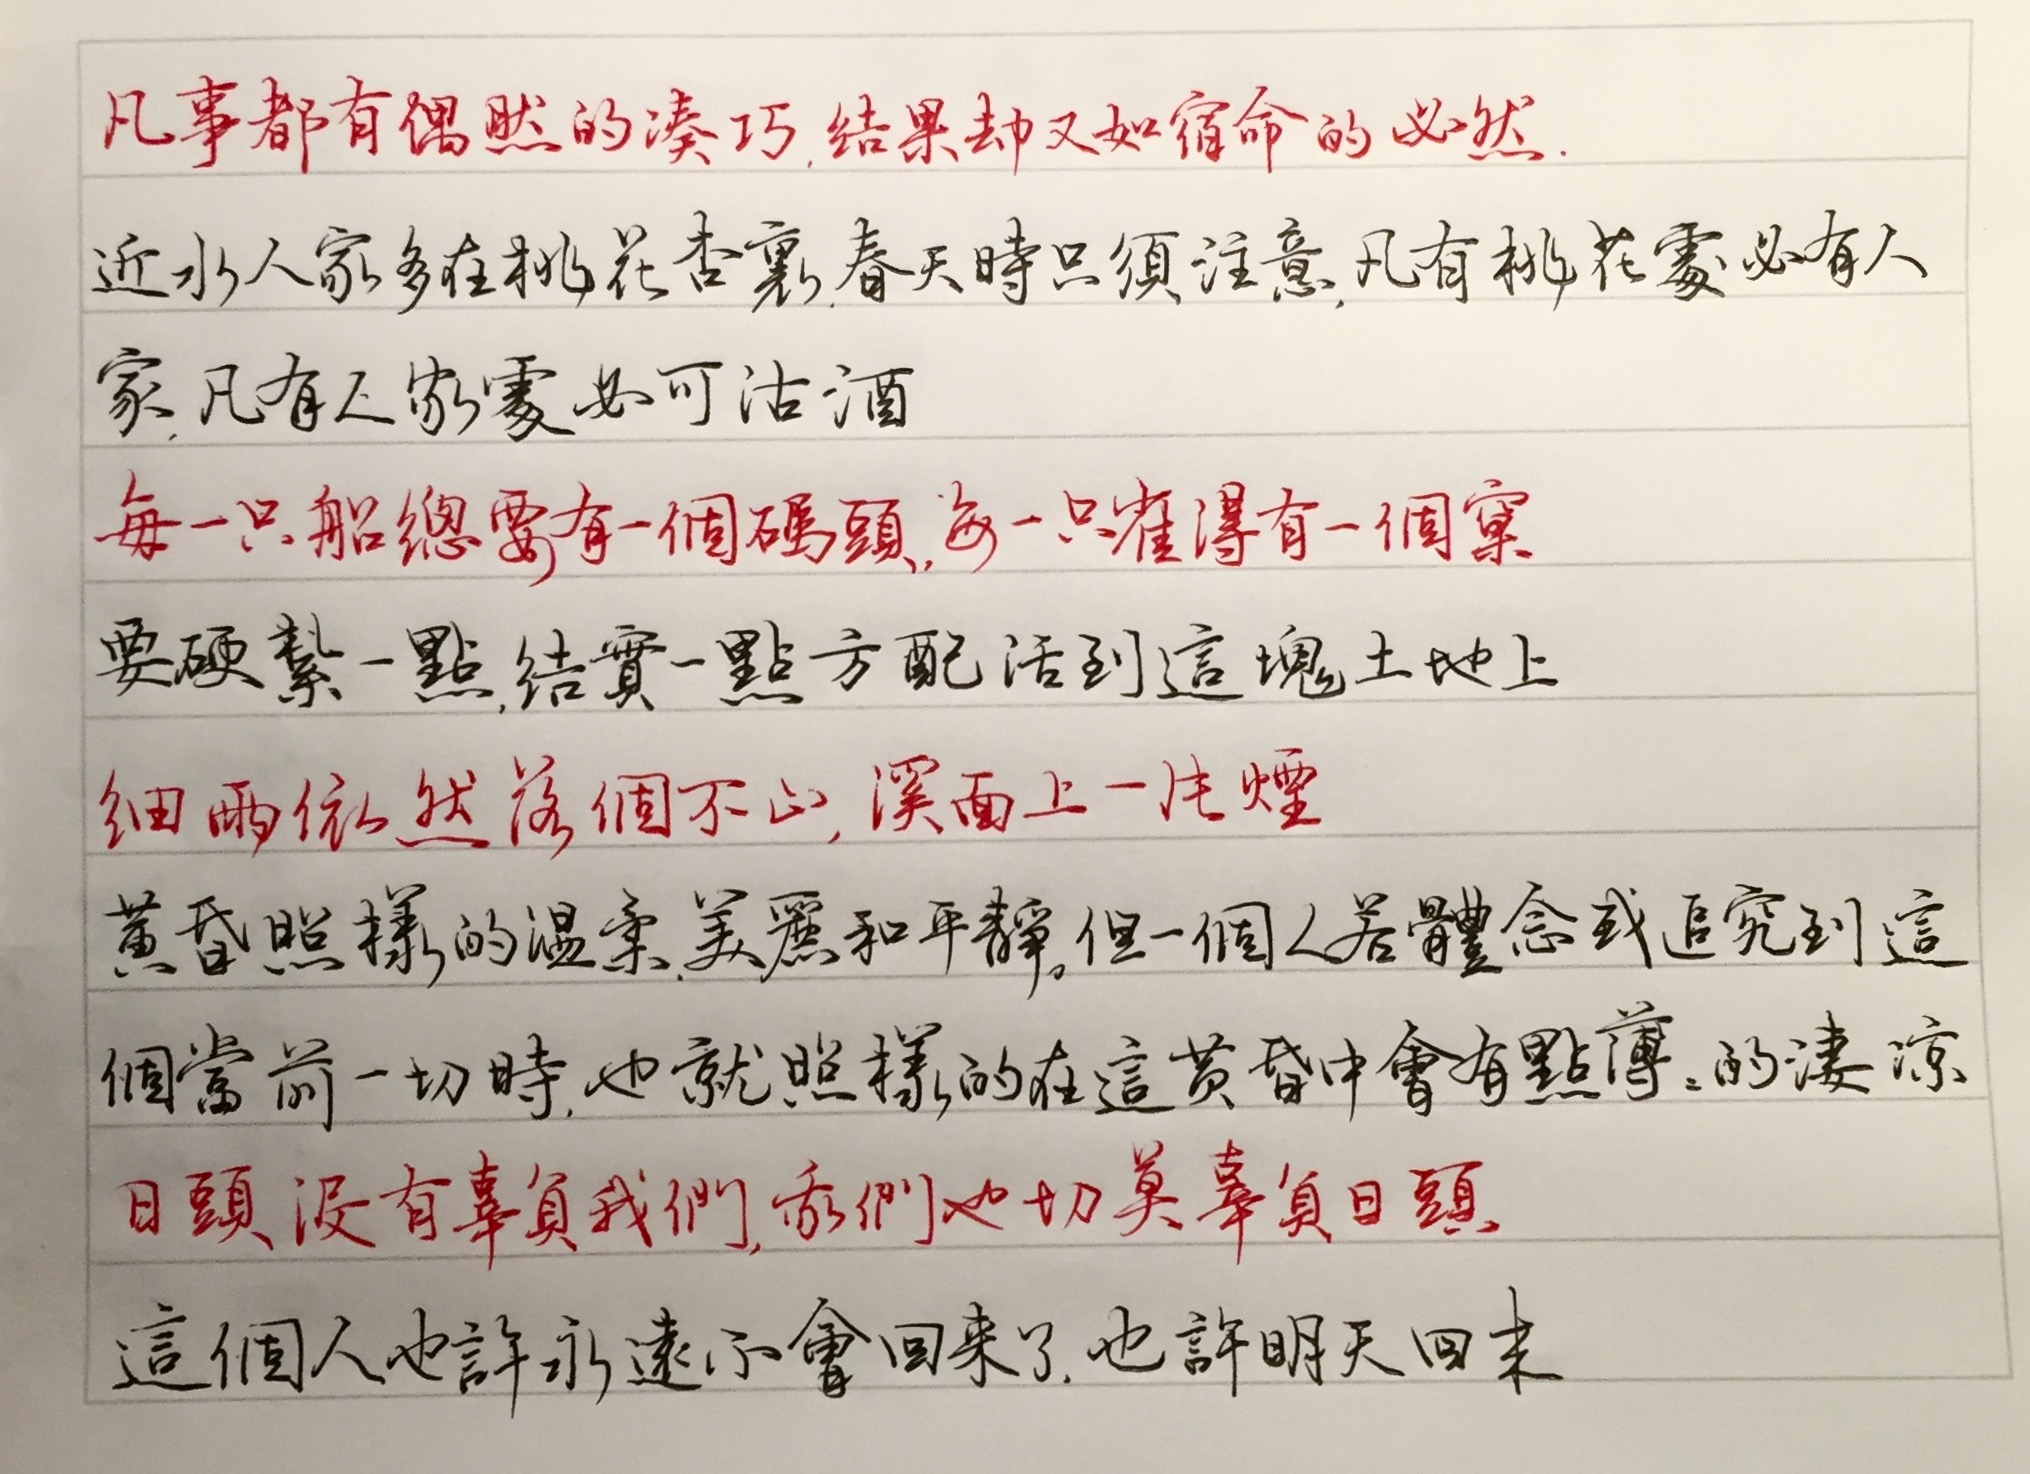 凡事都有偶然的凑巧,结果却又如宿命的必然.
近水人家多在桃花杏裏,春天時只須注意,凡有桃花處必有人
家,凡有人家處必可沽酒
每一只船總要有一個碼頭,每一只雀得有一個窠
要硬紮一點,结實一點方配活到這塊土地上
细雨依然落個不止,溪面上一片煙
黄昏照樣的温柔,美麗和平靜,但一個人若體念或追究到這
個當前一切時,也就照樣的在這黄昏中會有點薄薄的凄凉
日頭没有辜負我們,我們也切莫辜負日頭
這個人也許永遠不會回来了,也許明天回来